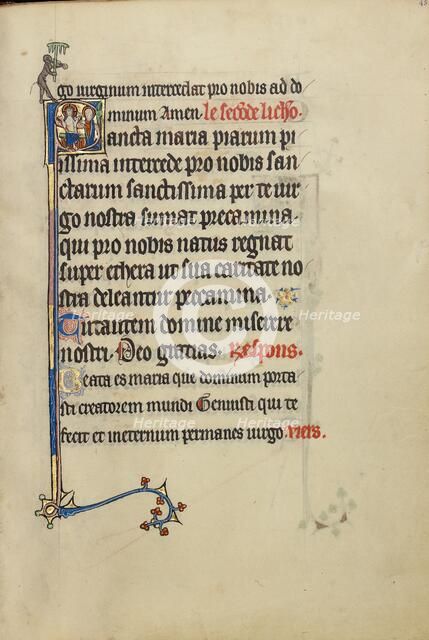 43
go virginum intercedat pro nobis ad do
minum Amen. le secode licho.
Sancta maria piarum pi
issima intercede pro nobis san
ctarum sanctissima per te vir
go nostra sumat precamina.
qui pro nobis natus regnat
super ethera ut sua caritate no
stra deleantur peccamina.
Tu autem domine miserere
nostri. Deo gratias. Respons.
Beata es maria que dominum porta
sti creatorem mundi Genuisti qui te
fecit et ineternum permanes virgo. vers.
Heritage Heritage Heritage
Images Images Images